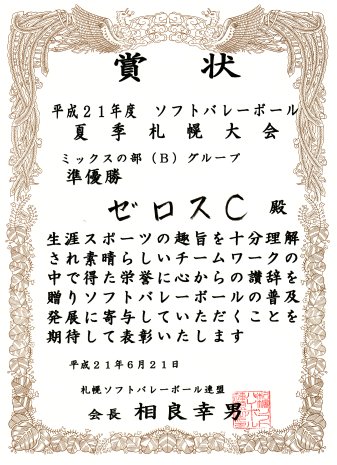 賞 状
平成21年度 ソフトバレーボール
夏季札幌大会
ミックスの部(B)グループ
準優勝
ゼロスC 殿
生涯スポーツの趣旨を十分理解
され素晴らしいチームワークの
中で得た栄誉に心からの讃辞を
贈りソフトバレーボールの普及
発展に寄与していただくことを
期待して表彰いたします
平成21年6月21日
札幌ソフトバレーボール連盟
会長 相良幸男